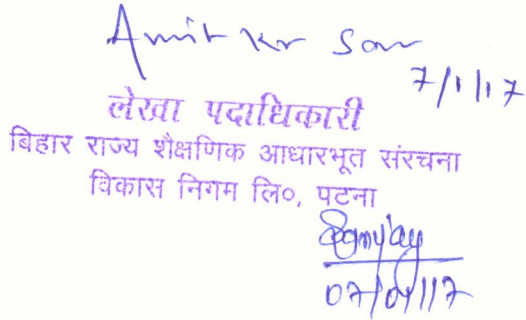 Amit Kr Saw
7/1/17
लेखा पदाधिकारी
बिहार राज्य शैक्षणिक आधारभूत संरचना
विकास निगम लि०, पटना
07/01/17